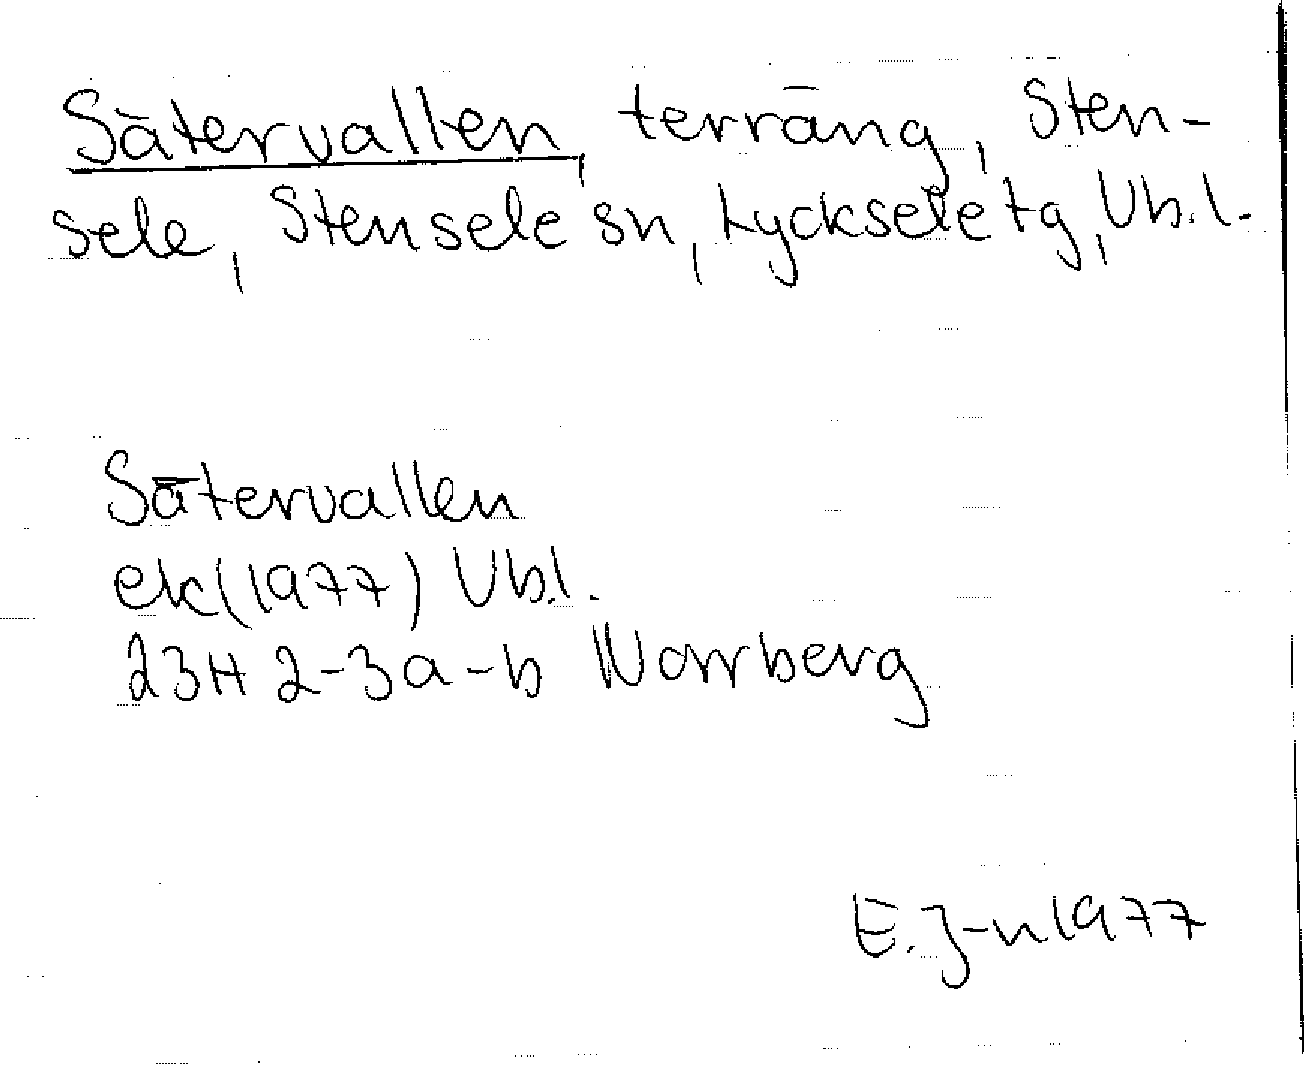 Sätervallen, terräng, Sten-
sele, Stensele sn, Lycksele tg, Vb.l.
Sätervallen
ek(1977) Vb.l.
23H 2-3a-b Norrberg
E.J-n 1977